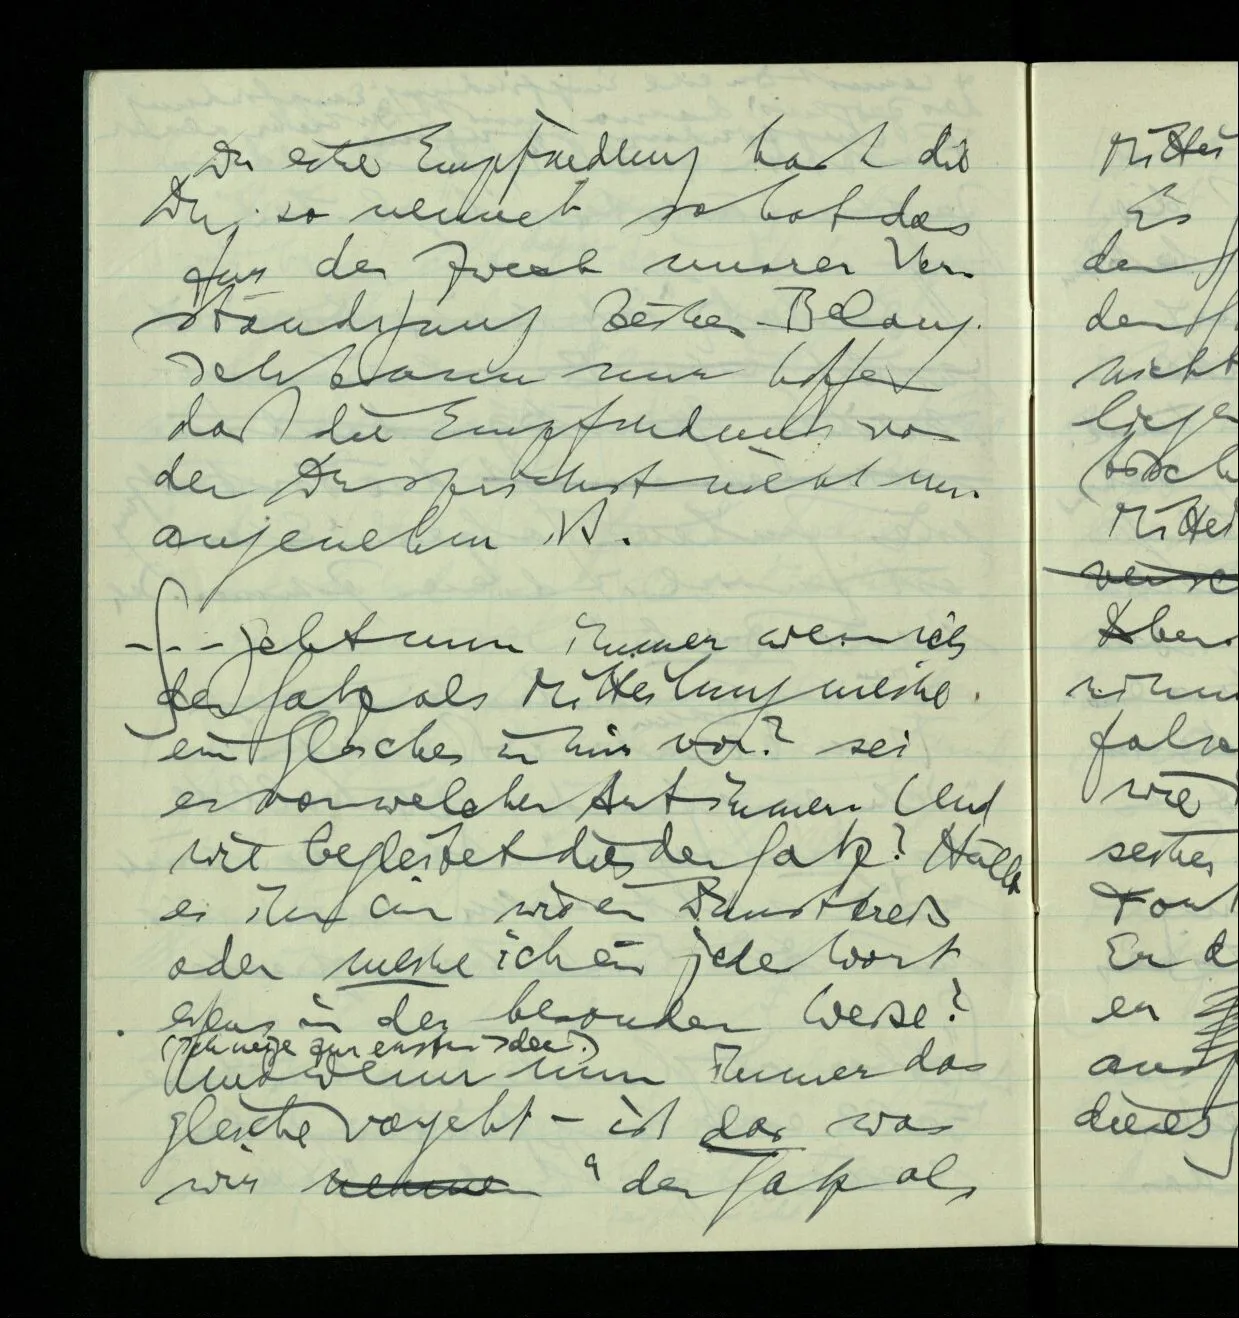 Du eine Empfindung hast die
Du so nennst so hat das
für den Zweck unserer Ver-
ständigung keinen Belang.
Ich kann nur hoffen
daß die Empfindung von
der Du sprichst nicht un-
angenehm ist.
∫ – – Geht nun immer wenn ich
den Satz als Mitteilung meine
ein Gleiches in mir vor? sei
es von welcher Art immer. Und
wie begleitet dies den Satz? Hüllt
es ihn ein wie ein Dunstkreis
oder meine ich ein jedes Wort
eigens in der besondern Weise?
(Ich neige zur ersten Idee.)
Und wenn nun immer das
gleiche vorgeht – ist das was
wir nennen "den Satz als
Mittei
Es
den
den
nicht
liegen
Mittei
Aber
nimm
falsc
wie
seines
Er d
er
aus
dieses